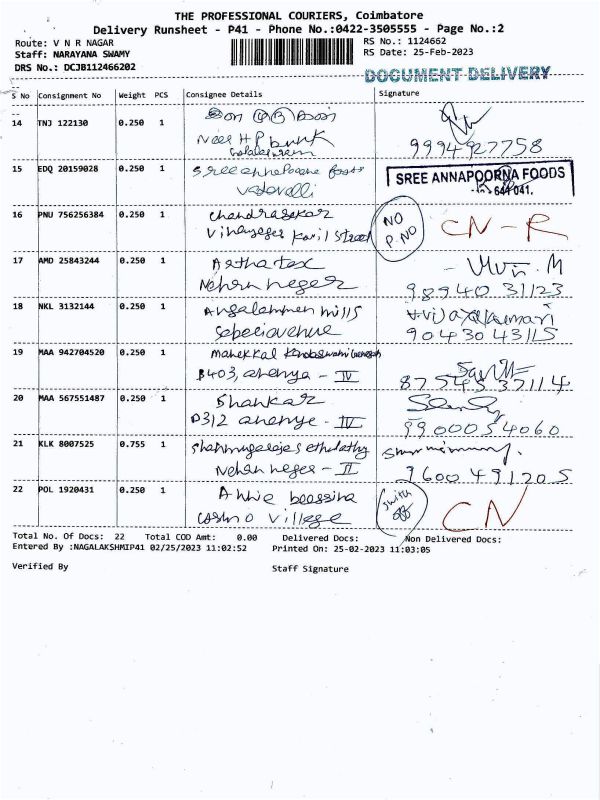 THE PROFESSIONAL COURIERS, Coimbatore
Delivery Runsheet - P41 - Phone No.:0422-3505555 - Page No.:2
Route: V N R NAGAR
Staff: NARAYANA SWAMY
DRS No.: DCJB112466202
RS No.: 1124662
RS Date: 25-Feb-2023
DOCUMENT DELIVERY
S No Consignment No Weight PCS Consignee Details Signature
14 TNJ 122130 0.250 1
Near H P bunk
9994927758
15 EDQ 20159028 0.250 1 Sree annapoorna foods
vadavalli
SREE ANNAPOORNA FOODS
641 041.
16 PNU 756256384 0.250 1 Chandrasekar
Vinayager Kovil Street
NO
P. NO
CN - R
17 AMD 25843244 0.250 1 Astha tex
Nehru neger
9894031123
18 NKL 3132144 0.250 1 Angalamman mills
v-vijayakumari
9043043115
19 MAA 942704520 0.250 1
B403, ananya - IV
8754537114
20 MAA 567551487 0.250 1 Shankar
D312 ananye - IV
9900054060
21 KLK 8007525 0.755 1
Nehru neger - II
9600491205
22 POL 1920431 0.250 1 Annie
cosmo village
switch
off
CN
Total No. Of Docs: 22 Total COD Amt: 0.00 Delivered Docs: Non Delivered Docs:
Entered By :NAGALAKSHMIP41 02/25/2023 11:02:52 Printed On: 25-02-2023 11:03:05
Verified By Staff Signature